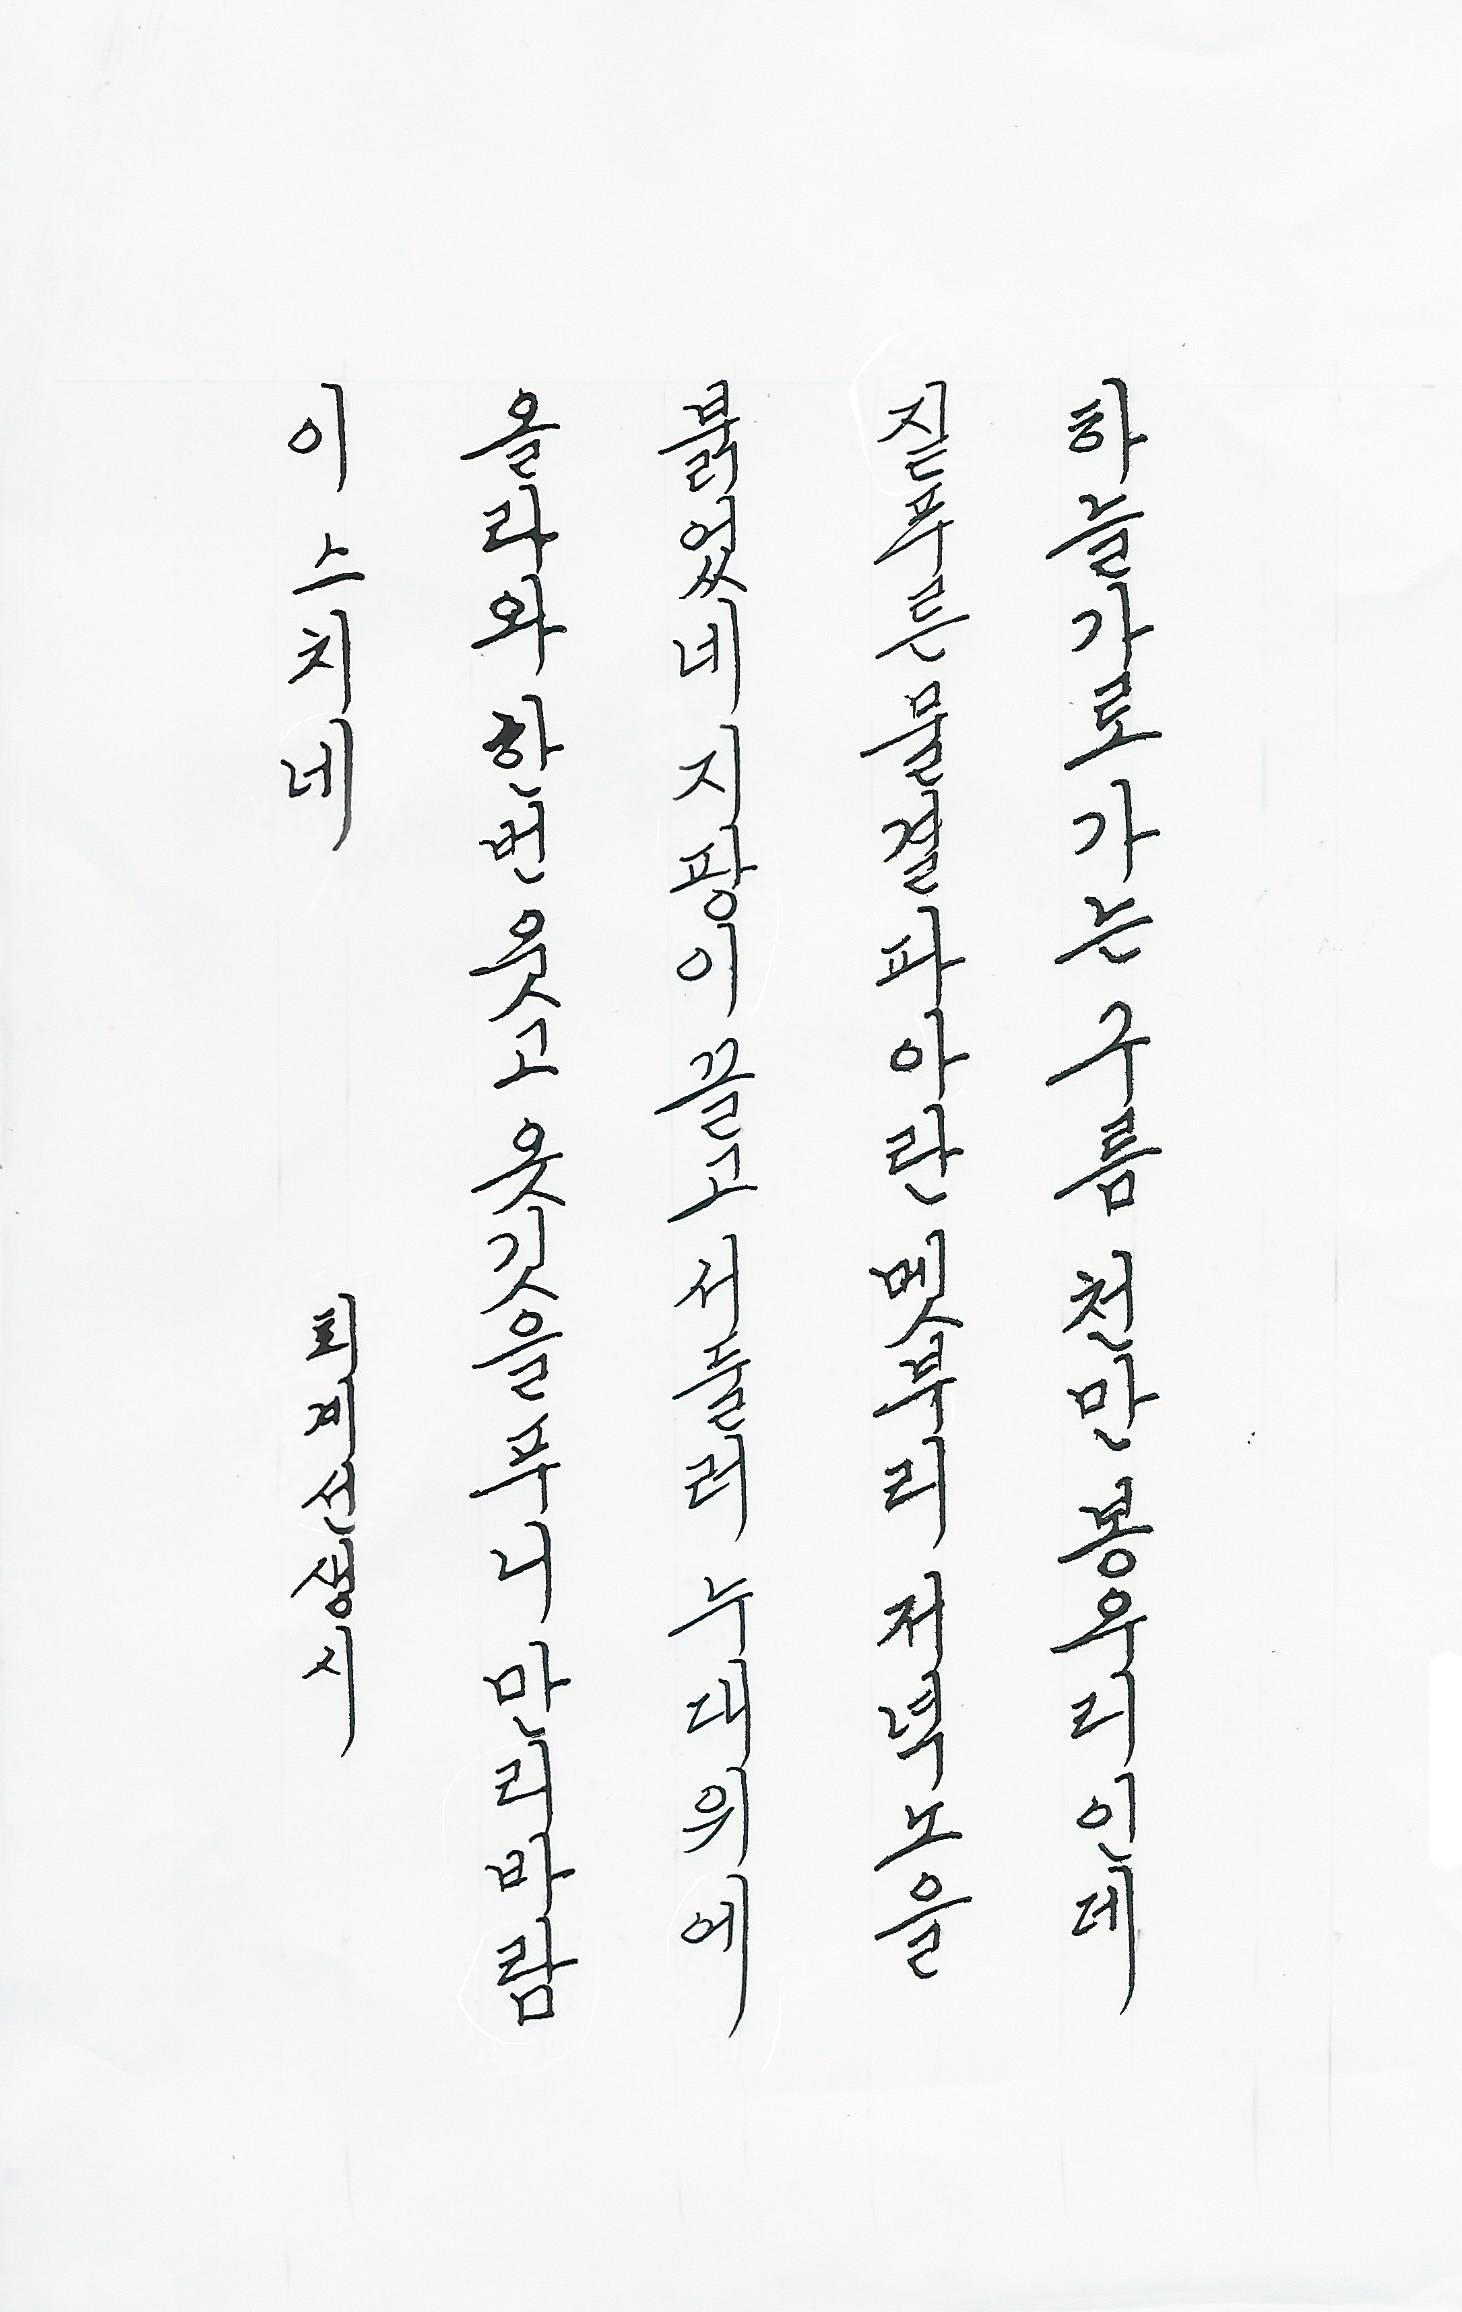 하늘가로 가는 구름 천만 봉우리인데
짙푸른 물결 파아란 멧부리 저녁노을
붉었네 지팡이 끌고 서둘러 누대위에
올라와 한번 웃고 옷깃을 푸니 만리바람
이 스치네
퇴계선생시